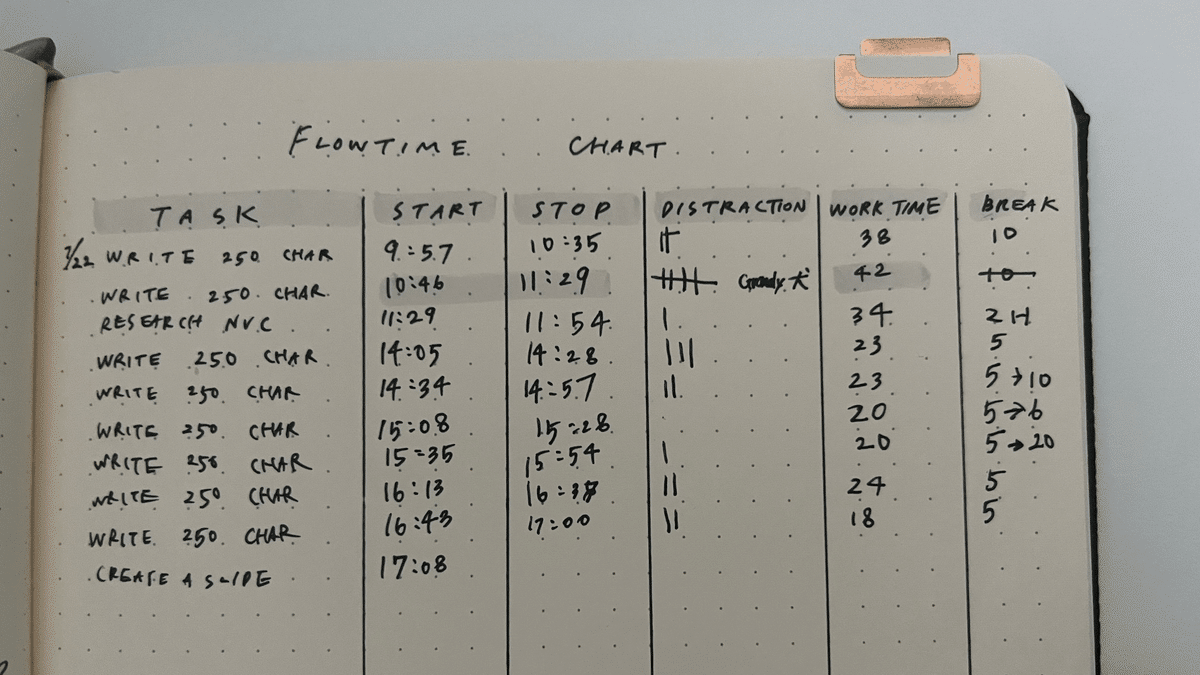 FLOWTIME CHART
TASK START STOP DISTRACTION WORK TIME BREAK
7/22 WRITE 250 CHAR 9:57 10:35 || 38 10
WRITE 250 CHAR 10:46 11:29 42 10
RESEARCH NVC 11:29 11:54 | 34 2H
WRITE 250 CHAR 14:05 14:28 ||| 23 5
WRITE 250 CHAR 14:34 14:57 || 23 5→10
WRITE 250 CHAR 15:08 15:28 20 5→6
WRITE 250 CHAR 15:35 15:54 | 20 5→20
WRITE 250 CHAR 16:13 16:38 || 24 5
WRITE 250 CHAR 16:43 17:00 || 18 5
CREATE A SLIDE 17:08